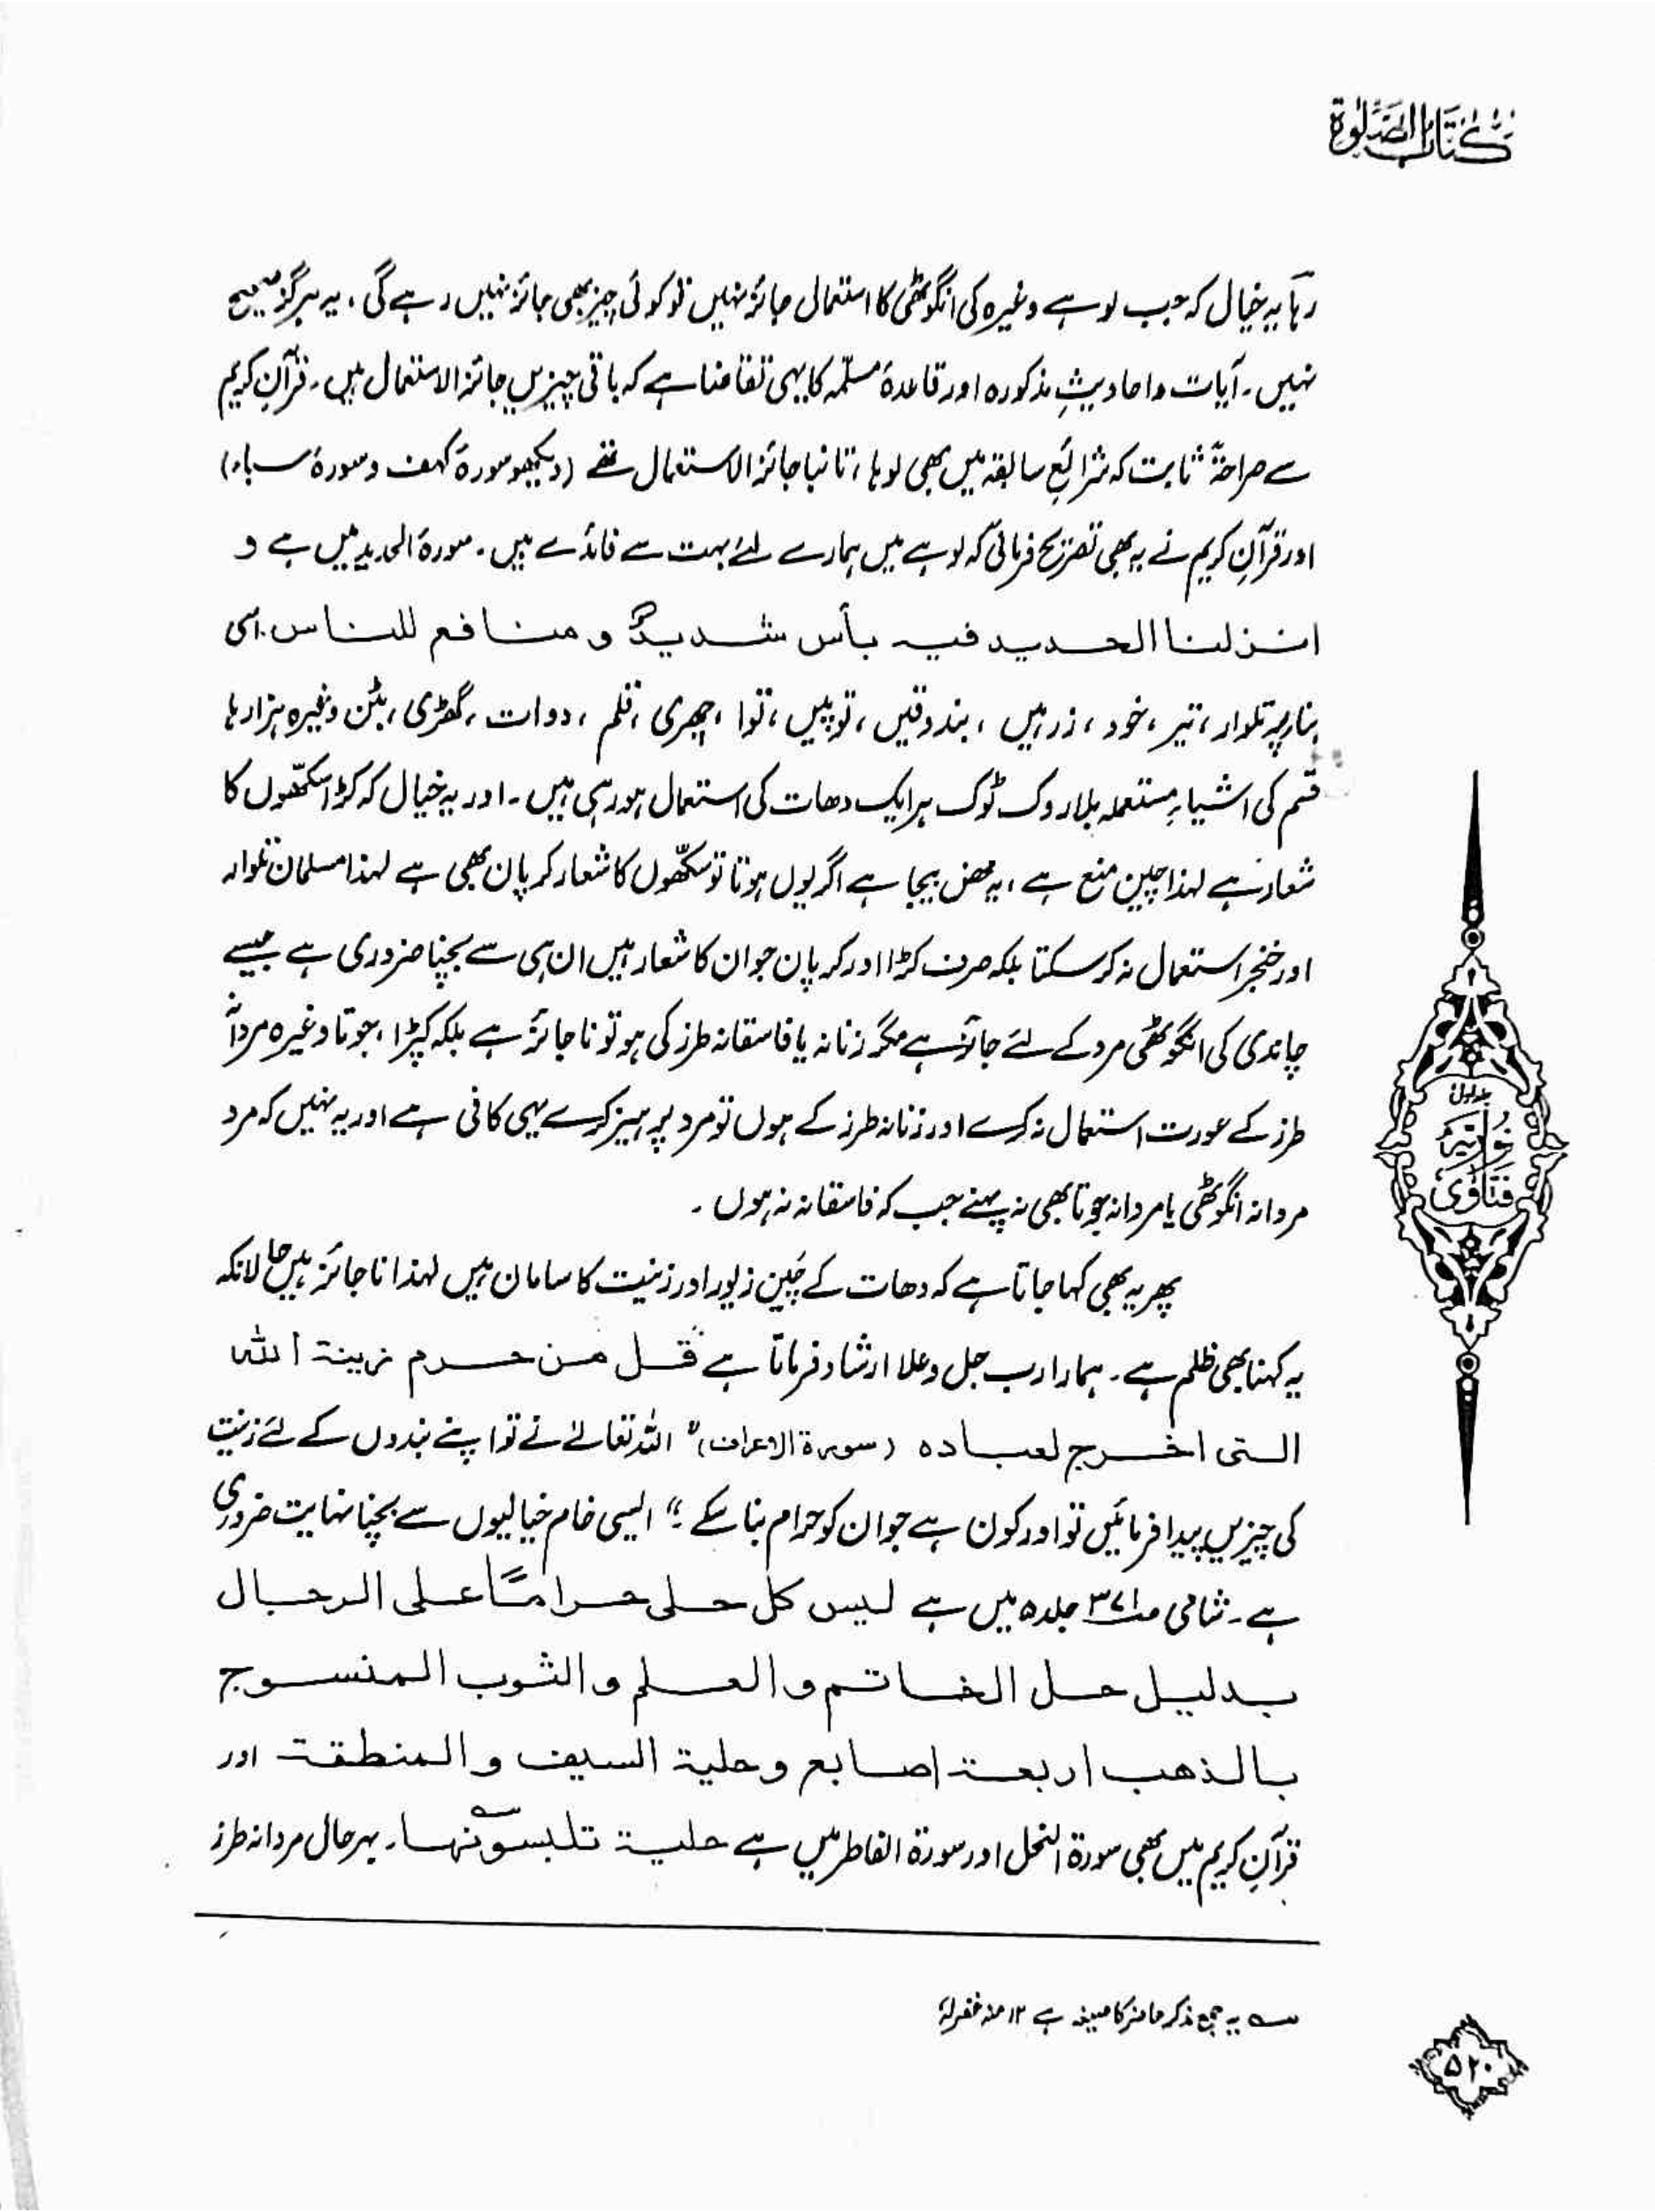 كتاب الصلوة
رہا یہ خیال کہ جب لوہے وغیرہ کی انگوٹھی کا استعمال جائز نہیں تو کوئی چیز بھی جائز نہیں رہے گی ، یہ ہرگز صحیح
نہیں ۔ آیات و احادیثِ مذکورہ اور قاعدۂ مسلّمہ کا یہی تقاضا ہے کہ باقی چیزیں جائز الاستعمال ہیں ۔ قرآنِ کریم
سے صراحۃً ثابت کہ شرائعِ سابقہ میں بھی لوہا ، تانبا جائز الاستعمال تھے (دیکھو سورۂ کہف و سورۂ سباء)
اور قرآنِ کریم نے یہ بھی تصریح فرمائی کہ لوہے میں ہمارے لئے بہت سے فائدے ہیں ۔ سورۂ الحدید میں ہے و
انزلنا الحديد فيہ بأس شديدٌ و منافع للناس . اسی
بناء پر تلوار ، تیر ، خود ، زرہیں ، بندوقیں ، توپیں ، توا ، چھری ، قلم ، دوات ، گھڑی ، بٹن وغیرہ ہزارہا
قسم کی اشیاءِ مستعملہ بلا روک ٹوک ہر ایک دھات کی استعمال ہو رہی ہیں ۔ اور یہ خیال کہ کڑا سکھّوں کا
شعار ہے لہذا چین منع ہے ، یہ محض بیجا ہے اگر یوں ہوتا تو سکھّوں کا شعار کرپان بھی ہے لہذا مسلمان تلوار
اور خنجر استعمال نہ کر سکتا بلکہ صرف کڑا اور کرپان جو ان کا شعار ہیں ان ہی سے بچنا ضروری ہے جیسے
چاندی کی انگوٹھی مرد کے لئے جائز ہے مگر زنانہ یا فاسقانہ طرز کی ہو تو ناجائز ہے بلکہ کپڑا ، جوتا وغیرہ مردانہ
طرز کے عورت استعمال نہ کرے اور زنانہ طرز کے ہوں تو مرد پرہیز کرے یہی کافی ہے اور یہ نہیں کہ مرد
مردانہ انگوٹھی یا مردانہ جوتا بھی نہ پہنے جب کہ فاسقانہ نہ ہوں ۔
پھر یہ بھی کہا جاتا ہے کہ دھات کے چَین زیور اور زینت کا سامان ہیں لہذا ناجائز ہیں حالانکہ
یہ کہنا بھی ظلم ہے ۔ ہمارا رب جل و علا ارشاد فرماتا ہے قل من حرم زينة اللہ
التى اخرج لعباده (سورة الاعراف) " اللہ تعالےٰ نے تو اپنے بندوں کے لئے زینت
کی چیزیں پیدا فرمائیں تو اور کون ہے جو ان کو حرام بنا سکے ؛" ایسی خام خیالیوں سے بچنا نہایت ضروری
ہے ۔ شامی صـ ٣٧١ جلد ٥ میں ہے ليس كل حلى حراماً على الرجال
بدليل حل الخاتم و العلم و الثوب المنسوج
بالذهب اربعة اصابع و حلية السيف و المنطقة اور
قرآنِ کریم میں بھی سورة النحل اور سورة الفاطر میں ہے حلية تلبسونها ۔ بہرحال مردانہ طرز
؂ یہ جمع مذکر حاضر کا صیغہ ہے ١٢ منہ غفرلہٗ
جلد اول
نوریہ
فتاوٰی
٥٢٠